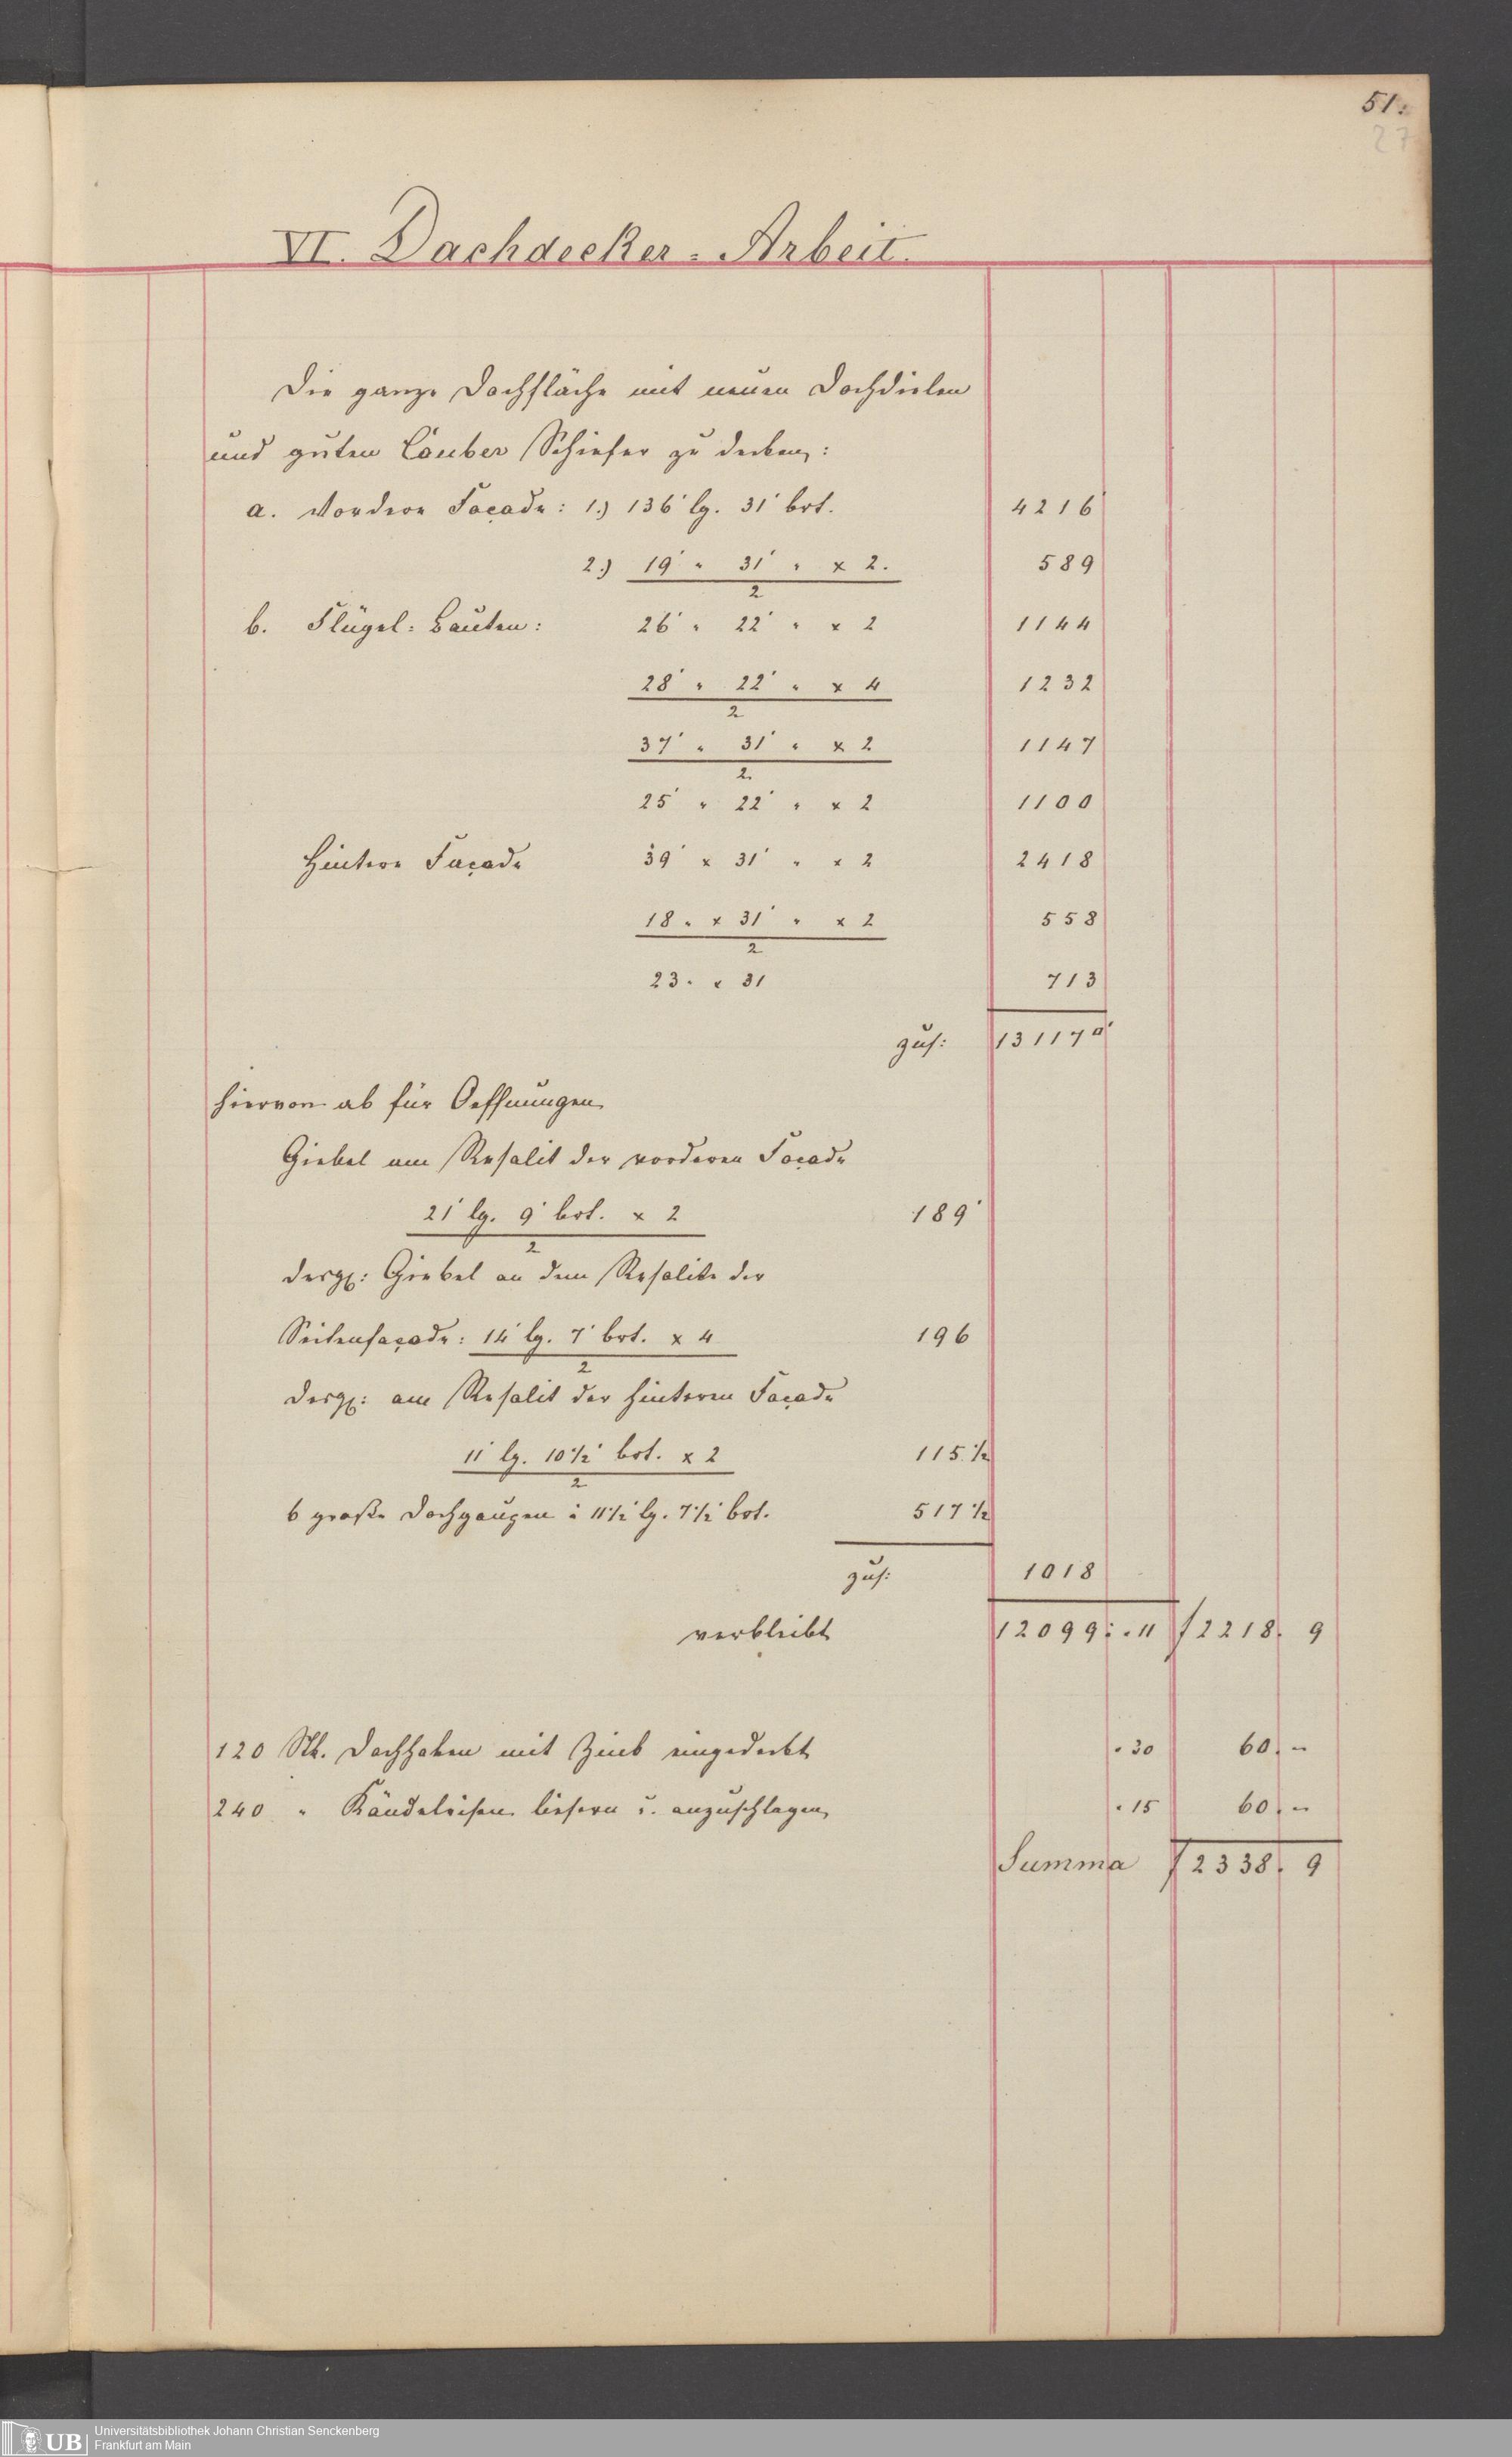 51.
27
VI. Dachdecker-Arbeit.
Die ganze Dachfläche mit neuen Dachdielen
und guten Cauber Schiefer zu decken:
a. Vordere Façade: 1.) 136' lg. 31' brt. 4216
2.) 19' " 31' " x 2. 589
2
b. Flügel-Bauten: 26' " 22' " x 2 1144
28' " 22' " x 4 1232
2
37' " 31' " x 2 1147
2
25' " 22' " x 2 1100
Hintere Façade 39' x 31' " x 2 2418
18 " x 31' " x 2 558
2
23 " x 31 713
zus: 13117 □'
hiervon ab für Oeffnungen
Giebel am Risalit der vorderen Façade
21' lg. 9' brt. x 2 189'
2
desgl: Giebel an dem Risalite der
Seitenfaçade: 14' lg. 7' brt. x 4 196
2
desgl: am Risalit der hinteren Façade
11' lg. 10 1/2' brt. x 2 115 1/2
2
6 große Dachgaupen à 11 1/2' lg. 7 1/2' brt. 517 1/2
zus: 1018
verbleibt 12099 : " 11 f 2218. 9
120 Stk. Dachhaken mit Zink eingedeckt " 30 60. –
240 " Kändeleisen liefern u. anzuschlagen " 15 60. –
Summa f 2338. 9
UB
Universitätsbibliothek Johann Christian Senckenberg
Frankfurt am Main